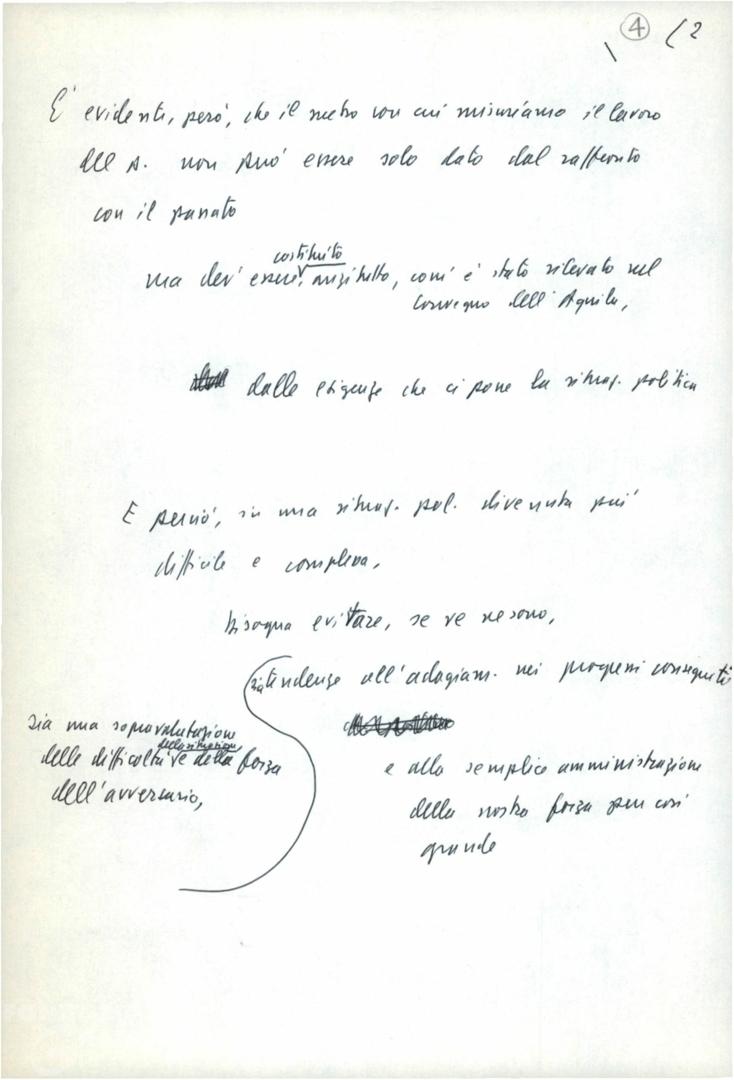 4 (2
E' evidente, però, che il metro con cui misuriamo il lavoro
del p. non può essere solo dato dal raffronto
con il passato
costituito
ma dev' essere, anzitutto, com' è stato rilevato nel
Convegno dell' Aquila,
dalle esigenze che ci pone la situaz. politica
E perciò, in una situaz. pol. divenuta più
difficile e complessa,
bisogna evitare, se ve ne sono,
sia tendenze all'adagiam. nei progressi conseguiti
e alla semplice amministrazione
della nostra forza pur così
grande
sia una sopravalutazione
della situazione
delle difficoltà e della forza
dell'avversario,